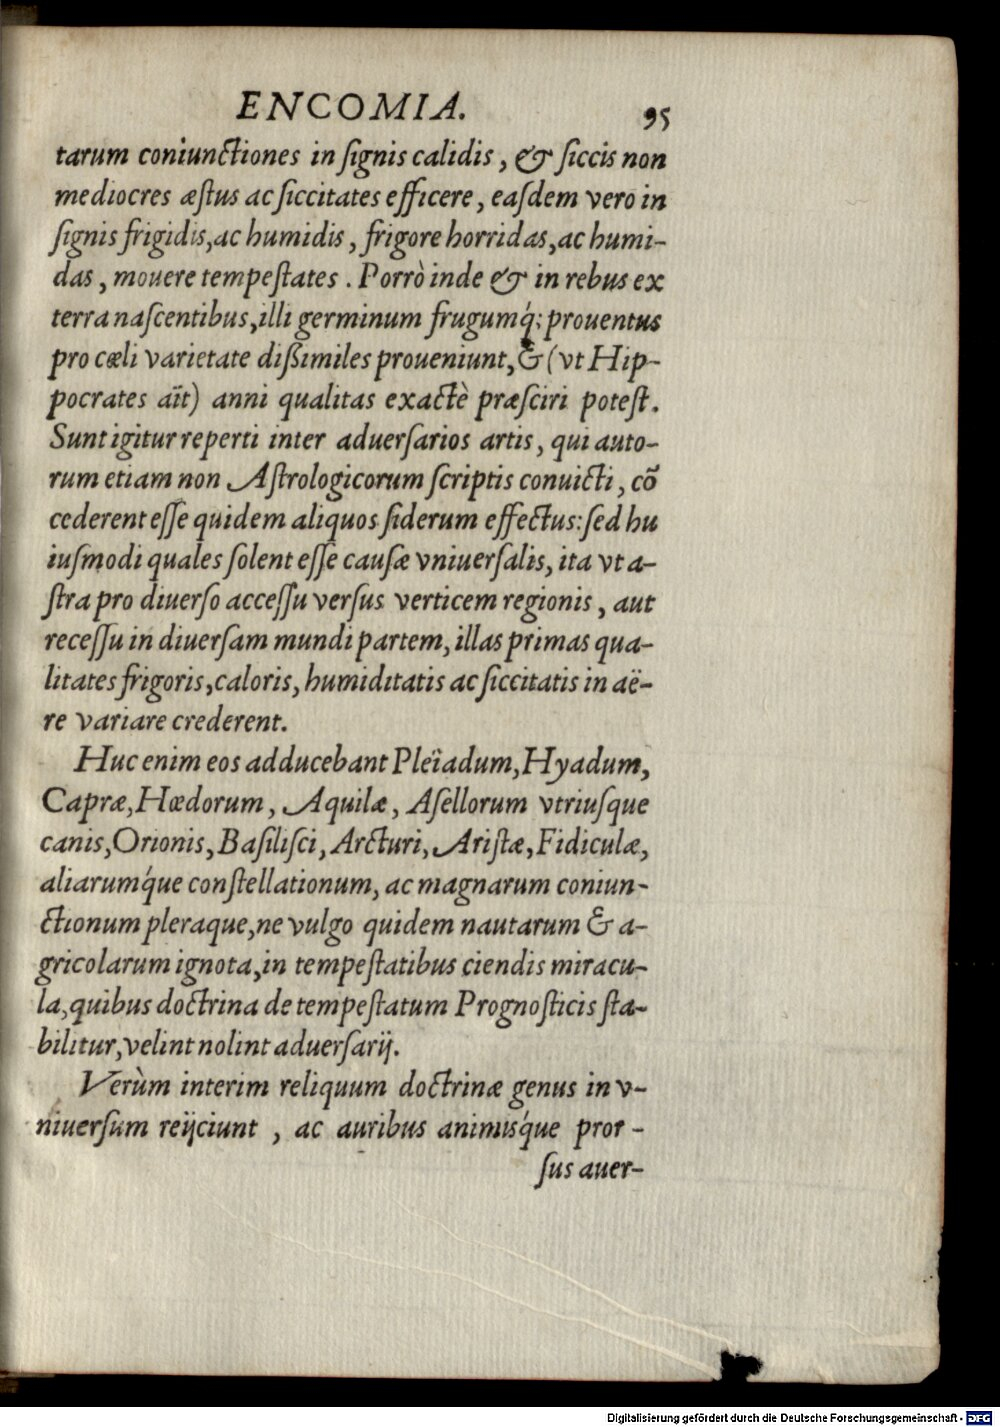 ENCOMIA. 95
tarum coniunctiones in ſignis calidis, & ſiccis non
mediocres æſtus ac ſiccitates efficere, eaſdem vero in
ſignis frigidis, ac humidis, frigore horridas, ac humi-
das, mouere tempeſtates. Porrò inde & in rebus ex
terra naſcentibus, illi germinum frugumq́; prouentus
pro cæli varietate dißimiles proueniunt, & (vt Hip-
pocrates aït) anni qualitas exactè præſciri poteſt.
Sunt igitur reperti inter aduerſarios artis, qui auto-
rum etiam non Aſtrologicorum ſcriptis conuicti, cō
cederent eſſe quidem aliquos ſiderum effectus: ſed hu
iuſmodi quales ſolent eſſe cauſæ vniuerſalis, ita vt a-
ſtra pro diuerſo acceſſu verſus verticem regionis, aut
receſſu in diuerſam mundi partem, illas primas qua-
litates frigoris, caloris, humiditatis ac ſiccitatis in aë-
re variare crederent.
Huc enim eos adducebant Pleïadum, Hyadum,
Capræ, Hœdorum, Aquilæ, Aſellorum vtriusque
canis, Orionis, Baſiliſci, Arcturi, Ariſtæ, Fidiculæ,
aliarumq́ue conſtellationum, ac magnarum coniun-
ctionum pleraque, ne vulgo quidem nautarum & a-
gricolarum ignota, in tempeſtatibus ciendis miracu-
la, quibus doctrina de tempeſtatum Prognoſticis ſta-
bilitur, velint nolint aduerſarij.
Verùm interim reliquum doctrinæ genus in v-
niuerſum reijciunt, ac auribus animisq́ue pror-
ſus auer-
Digitalisierung gefördert durch die Deutsche Forschungsgemeinschaft - DFG